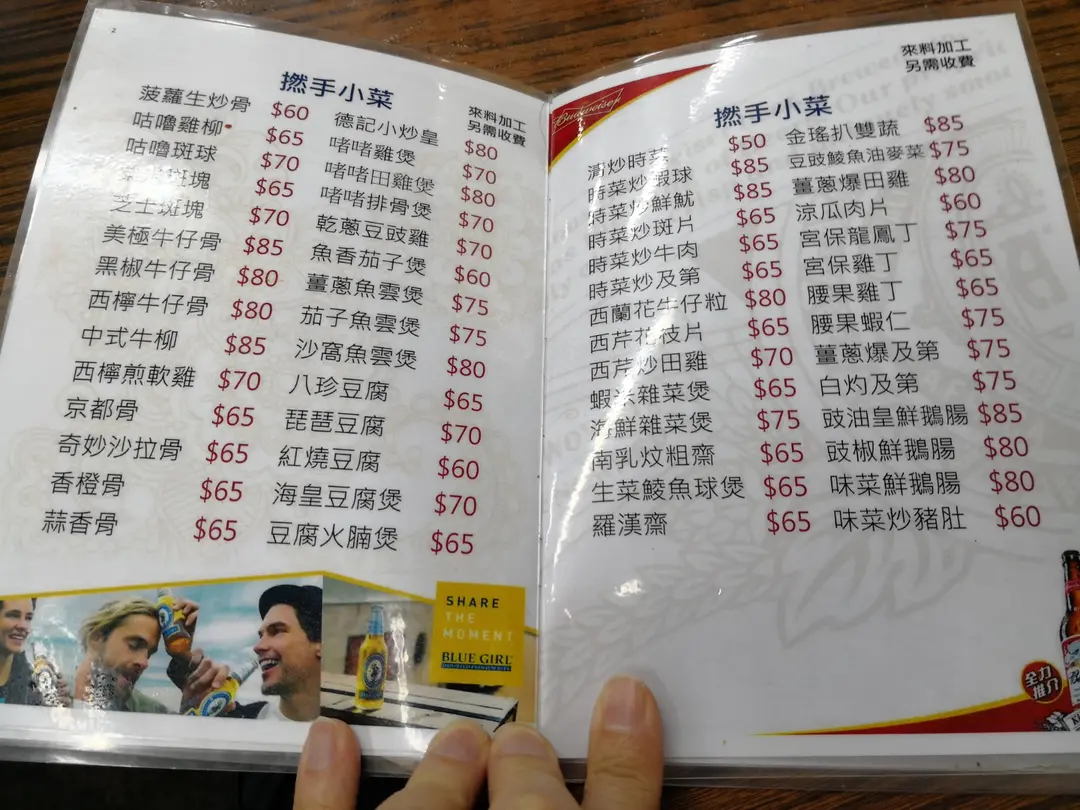 2
撚手小菜
來料加工
另需收費
菠蘿生炒骨 $60
咕嚕雞柳 $65
咕嚕斑球 $70
斑塊 $65
芝士斑塊 $70
美極牛仔骨 $85
黑椒牛仔骨 $80
西檸牛仔骨 $80
中式牛柳 $85
西檸煎軟雞 $70
京都骨 $65
奇妙沙拉骨 $65
香橙骨 $65
蒜香骨 $65
德記小炒皇 $80
啫啫雞煲 $70
啫啫田雞煲 $80
啫啫排骨煲 $70
乾蔥豆豉雞 $70
魚香茄子煲 $60
薑蔥魚雲煲 $75
茄子魚雲煲 $75
沙窩魚雲煲 $80
八珍豆腐 $65
琵琶豆腐 $70
紅燒豆腐 $60
海皇豆腐煲 $70
豆腐火腩煲 $65
SHARE
THE
MOMENT
BLUE GIRL
Budweiser
撚手小菜
來料加工
另需收費
清炒時菜 $50
時菜炒蝦球 $85
時菜炒鮮魷 $85
時菜炒斑片 $65
時菜炒牛肉 $65
時菜炒及第 $65
西蘭花牛仔粒 $80
西芹花枝片 $65
西芹炒田雞 $70
蝦米雜菜煲 $65
海鮮雜菜煲 $75
南乳炆粗齋 $65
生菜鯪魚球煲 $65
羅漢齋 $65
金瑤扒雙蔬 $85
豆豉鯪魚油麥菜 $75
薑蔥爆田雞 $80
涼瓜肉片 $60
宮保龍鳳丁 $75
宮保雞丁 $65
腰果雞丁 $65
腰果蝦仁 $75
薑蔥爆及第 $75
白灼及第 $75
豉油皇鮮鵝腸 $85
豉椒鮮鵝腸 $80
味菜鮮鵝腸 $80
味菜炒豬肚 $60
全力
推介